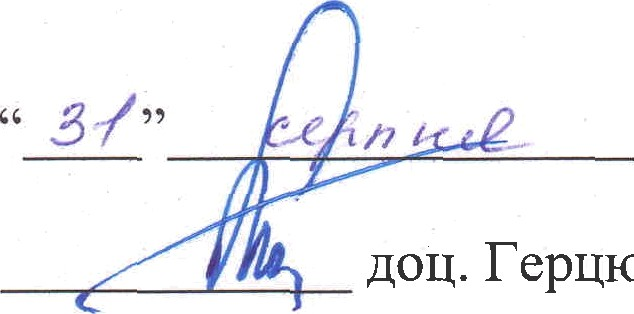 “31” серпня
доц. Герцю